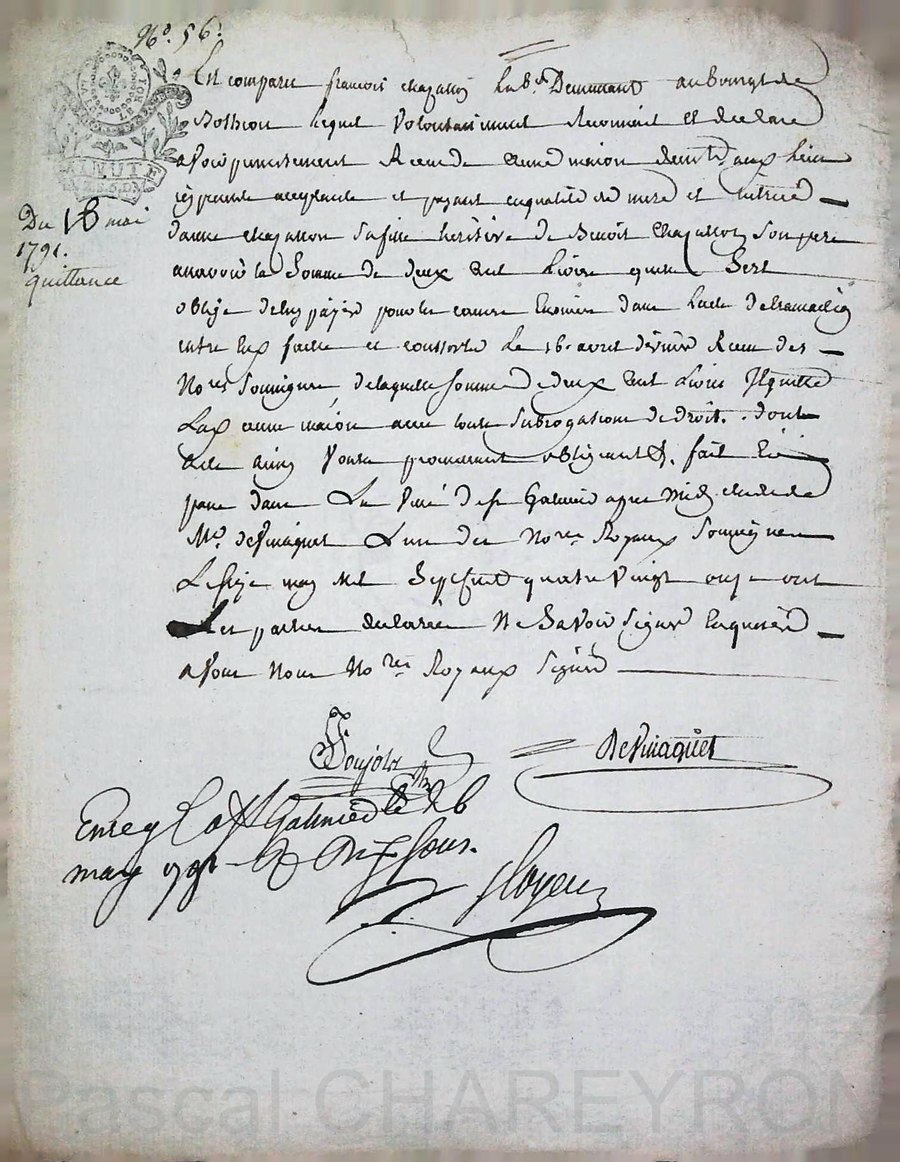 No. 56.
Du 16 mai
1791.
quittance
Est comparu françois chazallon hab. Demeurant au Bourg de
Bothéon lequel volontairement Reconnoit et declare
avoir presentement Receu de anne
icy presente acceptante et payant en qualité de mere et tutrice
danne chazallon sa fille heritière de Benoit chazallon son pere
a savoir la somme de deux cent livres quelle sest
obligé de luy payer pour les causes Enoncées dans lacte
entre Eux passé et le 16. avril dernier Receu des
Nores Soussignés de laquelle somme de deux cent Livres Il quitte
avec toute subrogations de droit. dont
acte ainsy voulu promettant obligeant &. fait Et
passé dans La ville de St Galmier apres midy etude de
Me. Devinaquet L'un des Nores Royaux soussignés
Le seize may mil sept cent quatre vingt onze ont
Les parties declarées Ne Savoir Signer Enquises
avons Nous Nores Royaux Signé
Devinaquet
Enreg. à St Galmier le 26
may 1791 dix sous.
Pascal CHAREYRON